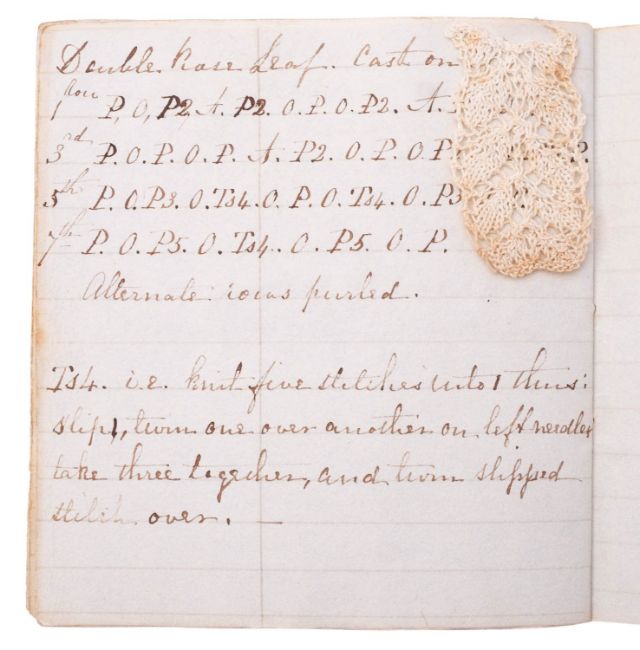 Double Rose Leaf. Cast on
1st Row P, O, P2, A. P2. O. P. O. P2. A.
3rd P. O. P. O. P. A. P2. O. P. O. P P.
5th P. O. P3. O. Ts4. O. P. O. Ts4. O. P3
7th P. O. P5. O. Ts4. O. P5. O. P.
Alternate rows purled.
Ts4. i.e. knit five stitches into 1 thus:
slip 1, turn one over another on left needle
take three together, and turn slipped
stitch over. —